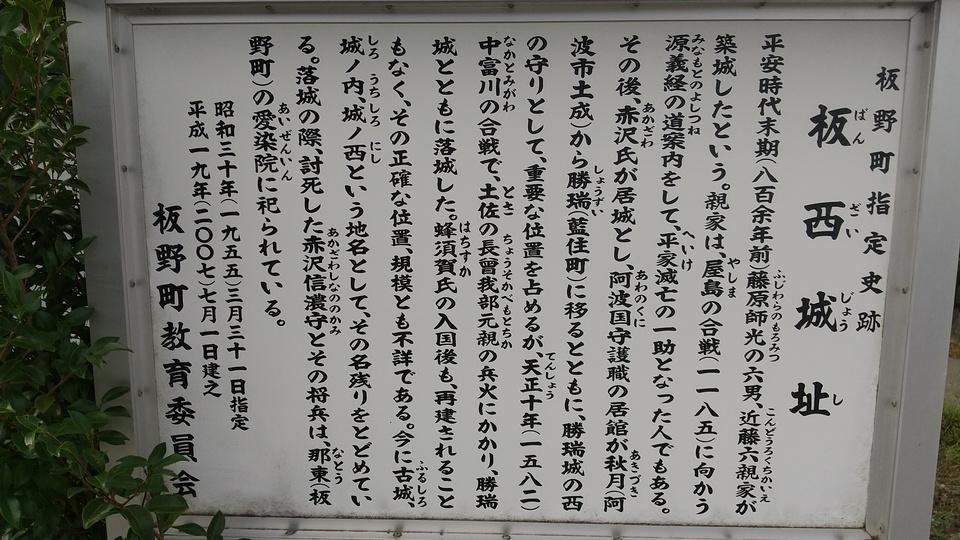 板野町指定史跡
板西城址
平安時代末期(八百余年前)藤原師光の六男、近藤六親家が
築城したという。親家は、屋島の合戦(一一八五)に向かう
源義経の道案内をして、平家滅亡の一助となった人でもある。
その後、赤沢氏が居城とし、阿波国守護職の居館が秋月(阿
波市土成)から勝瑞(藍住町)に移るとともに、勝瑞城の西
の守りとして、重要な位置を占めるが、天正十年(一五八二)
中富川の合戦で、土佐の長曾我部元親の兵火にかかり、勝瑞
城とともに落城した。蜂須賀氏の入国後も、再建されること
もなく、その正確な位置、規模とも不詳である。今に古城、
城ノ内、城ノ西という地名として、その名残りをとどめてい
る。落城の際、討死した赤沢信濃守とその将兵は、那東(板
野町)の愛染院に祀られている。
昭和三十年(一九五五)三月三十一日指定
平成一九年(二〇〇七)七月一日建之
板野町教育委員会